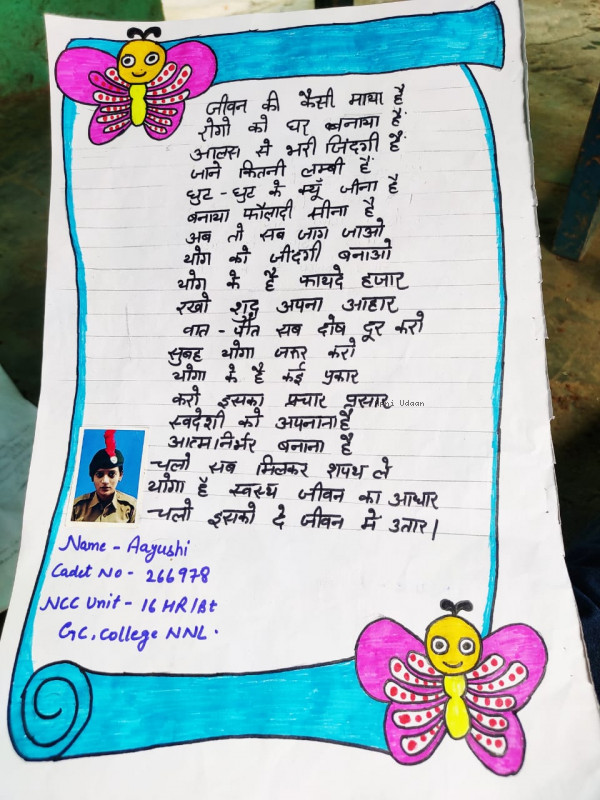 जीवन की कैसी माया है
रोगो को घर बनाया है
आलस से भरी जिंदगी है
जाने कितनी लम्बी है
घुट - घुट के क्यूँ जीना है
बनाया फौलादी सीना है
अब तो सब जाग जाओ
योग को जीदगी बनाओ
योग के है फायदे हजार
रखो शुद्ध अपना आहार
वात - पीत सब दोष दूर करो
सुबह योगा जरूर करो
योगा के है कई प्रकार
करो इसका प्रचार प्रसार
स्वदेशी को अपनाना है
आत्मनिर्भर बनाना है
चलो सब मिलकर शपथ ले
योगा है स्वस्थ जीवन का आधार
चलो इसको दे जीवन मे उतार।
Name - Aayushi
Cadet No - 266978
NCC Unit - 16 HR/Bt
G.C. College NNL.
Udaan